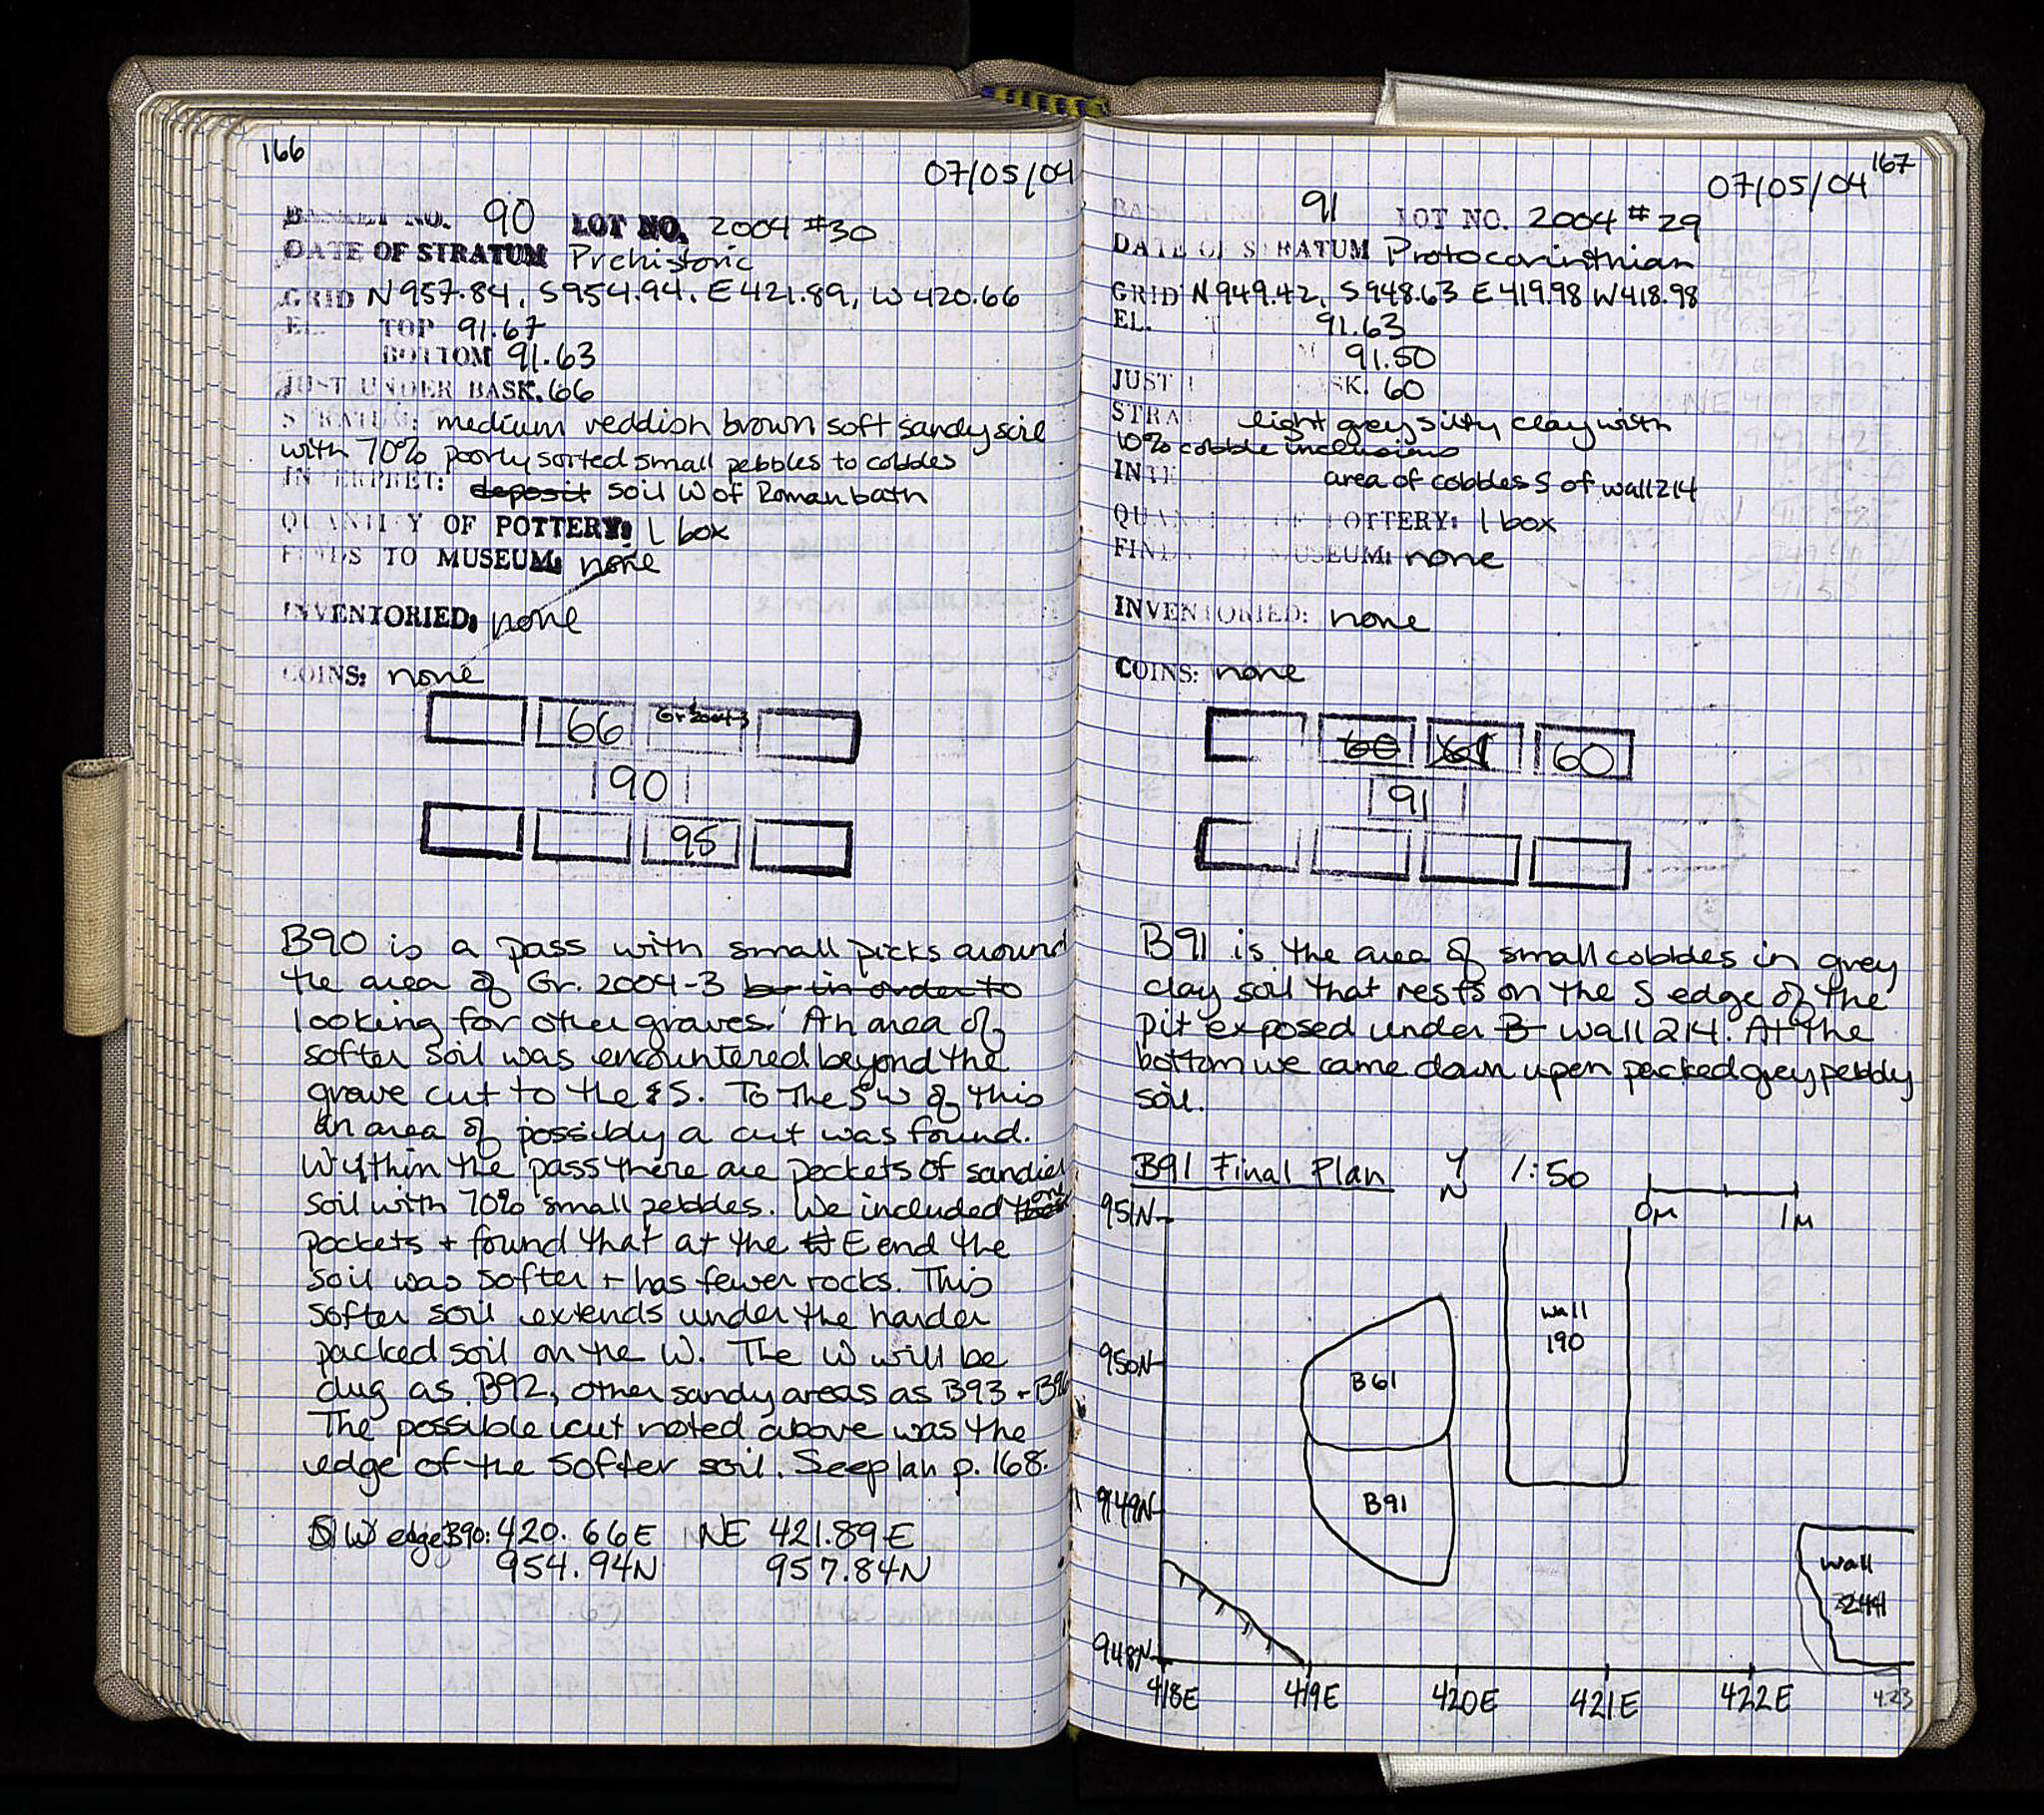 166
07/05/04
BASKET NO. 90 LOT NO. 2004 #30
DATE OF STRATUM Prehistoric
GRID N957.84, S954.94, E421.89, W420.66
EL. TOP 91.67
BOTTOM 91.63
JUST UNDER BASK. 66
STRATUM: medium reddish brown soft sandy soil
with 70% poorly sorted small pebbles to cobbles
INTERPRET: deposit soil W of Roman bath
QUANTITY OF POTTERY: 1 box
FINDS TO MUSEUM: none
INVENTORIED: none
COINS: none
66 Gr 2004-3
90
95
B90 is a pass with small picks around
the area of Gr. 2004-3 in order to
looking for other graves. An area of
softer soil was encountered beyond the
grave cut to the S. To the SW of this
an area of possibly a cut was found.
Within the pass there are pockets of sandier
soil with 70% small pebbles. We included
pockets + found that at the E end the
soil was softer + has fewer rocks. This
softer soil extends under the harder
packed soil on the W. The W will be
dug as B92, other sandy areas as B93 + B96
The possible cut noted above was the
edge of the softer soil. See plan p. 168.
SW edge B90: 420.66E NE 421.89E
954.94N 957.84N
167
07/05/04
91 LOT NO. 2004 #29
DATE OF STRATUM Protocorinthian
GRID N949.42, S948.63 E419.98 W418.98
EL. T 91.63
M. 91.50
JUST SK. 60
STRA light grey silty clay with
10% cobble inclusions
INTE area of cobbles S of wall 214
QUANTITY OF POTTERY: 1 box
FIND MUSEUM: none
INVENTORIED: none
COINS: none
60 61 60
91
B91 is the area of small cobbles in grey
clay soil that rests on the S edge of the
pit exposed under B wall 214. At the
bottom we came down upon packed grey pebbly
soil.
B91 Final Plan N 1:50
0M 1M
951N
950N
949N
948N
wall
190
B61
B91
wall
244
418E 419E 420E 421E 422E 423